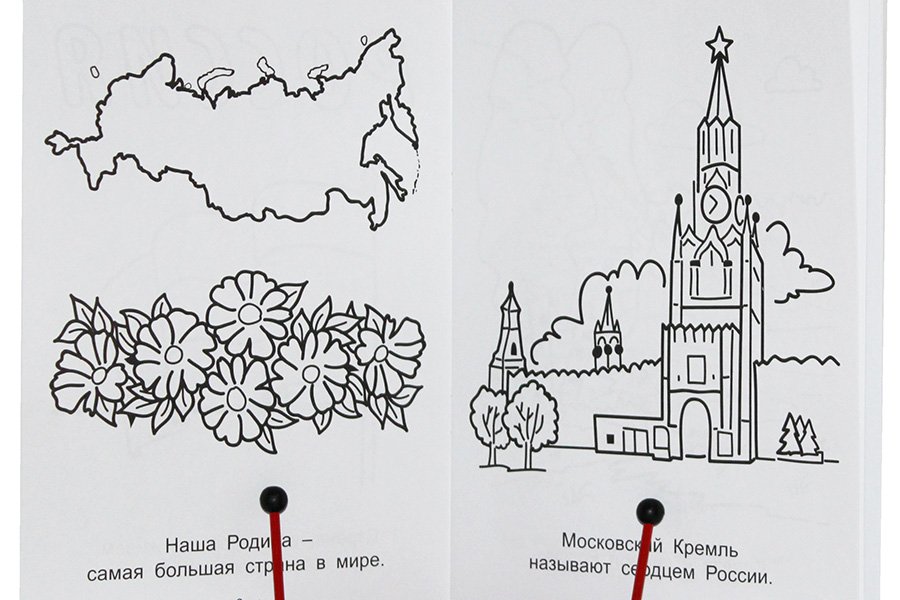 Наша Родина –
самая большая страна в мире.
Московский Кремль
называют сердцем России.